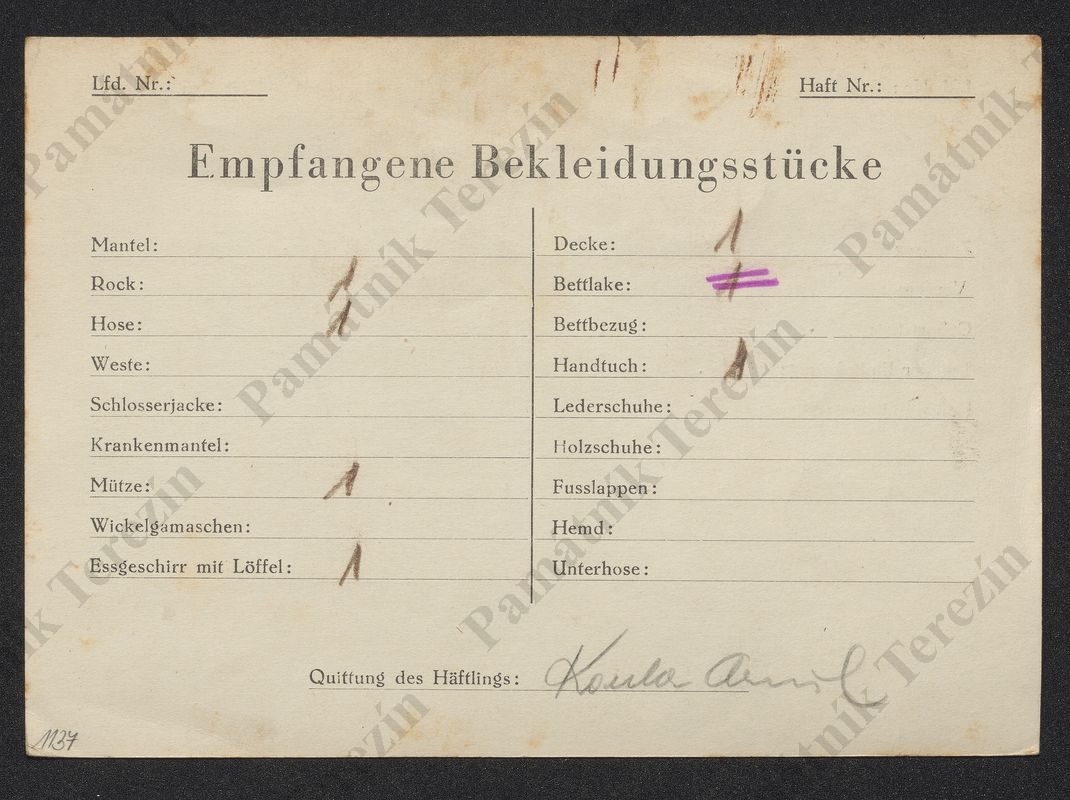 Lfd. Nr.:
Haft Nr.:
Empfangene Bekleidungsstücke
Mantel:
Rock: 1
Hose: 1
Weste:
Schlosserjacke:
Krankenmantel:
Mütze: 1
Wickelgamaschen:
Essgeschirr mit Löffel: 1
Decke: 1
Bettlake: 1
Bettbezug:
Handtuch: 1
Lederschuhe:
Holzschuhe:
Fusslappen:
Hemd:
Unterhose:
Quittung des Häftlings:
1137
Památník Terezín
Památník Terezín
Památník Terezín
Památník Terezín